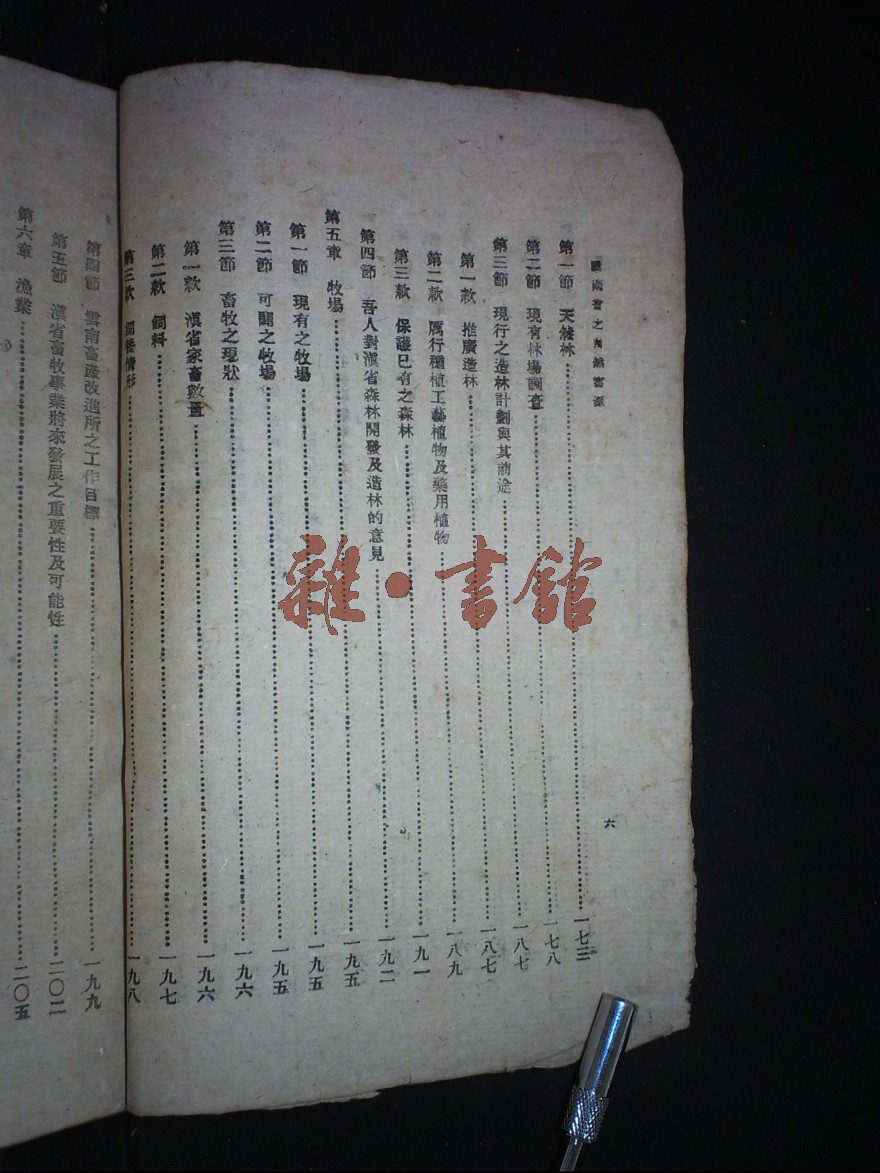 雲南省之自然富源
六
第一節 天然林 一七三
第二節 現有林場調查 一七八
第三節 現行之造林計劃與其前途 一八七
第一款 推廣造林 一八七
第二款 厲行種植工藝植物及藥用植物 一八九
第三款 保護已有之森林 一九一
第四節 吾人對滇省森林開發及造林的意見 一九二
第五章 牧場 一九五
第一節 現有之牧場 一九五
第二節 可闢之牧場 一九五
第三節 畜牧之現狀 一九六
第一款 滇省家畜數量 一九六
第二款 飼料 一九七
第三款 飼養情形 一九八
第四節 雲南畜產改進所之工作目標 一九九
第五節 滇省畜牧事業將來發展之重要性及可能性 二〇二
第六章 漁業 二〇五
雜·書館